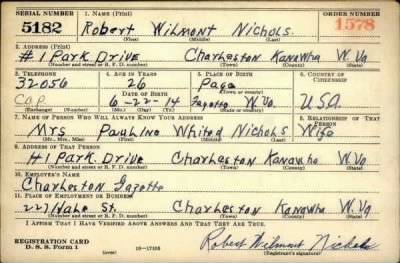 SERIAL NUMBER 1. NAME (Print) ORDER NUMBER
5182 Robert Wilmont Nichols. 1578
(First) (Middle) (Last)
2. ADDRESS (Print)
#1 Park Drive Charleston Kanawha W. Va
(Number and street or R. F. D. number) (Town) (County) (State)
3. TELEPHONE 4. AGE IN YEARS 5. PLACE OF BIRTH 6. COUNTRY OF CITIZENSHIP
32056 26 Page
DATE OF BIRTH (Town or county)
Cap. 6-22-14 Fayette W. Va. U.S.A.
(Exchange) (Number) (Mo.) (Day) (Yr.) (State or country)
7. NAME OF PERSON WHO WILL ALWAYS KNOW YOUR ADDRESS 8. RELATIONSHIP OF THAT PERSON
Mrs Pauline Nichols Wife
(Mr., Mrs., Miss) (First) (Middle) (Last)
9. ADDRESS OF THAT PERSON
#1 Park Drive Charleston Kanawha W. Va
(Number and street or R. F. D. number) (Town) (County) (State)
10. EMPLOYER'S NAME
Charleston Gazette
11. PLACE OF EMPLOYMENT OR BUSINESS
227 Hale St. Charleston Kanawha W. Va
(Number and street or R. F. D. number) (Town) (County) (State)
I AFFIRM THAT I HAVE VERIFIED ABOVE ANSWERS AND THAT THEY ARE TRUE.
REGISTRATION CARD
D. S. S. Form 1 Robert Wilmont Nichols
(Registrant's signature)